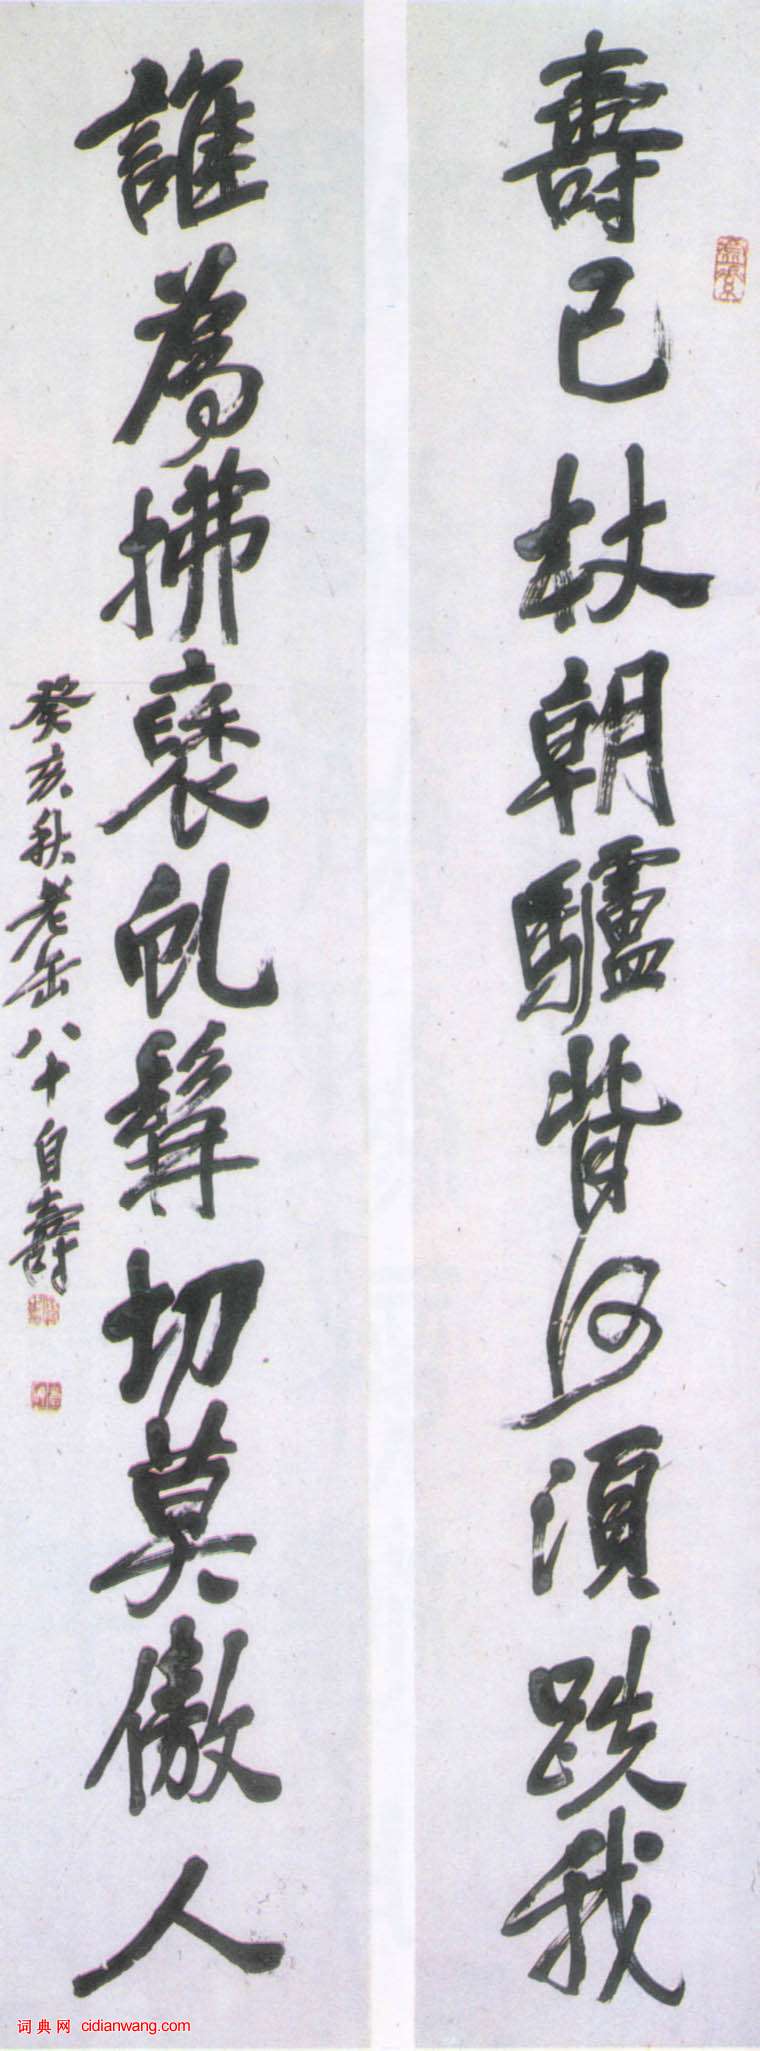 壽已杖朝驢背何須跌我
誰為拂褎虬髯切莫傲人
癸亥秋老缶八十自壽
词典网 cidianwang.com